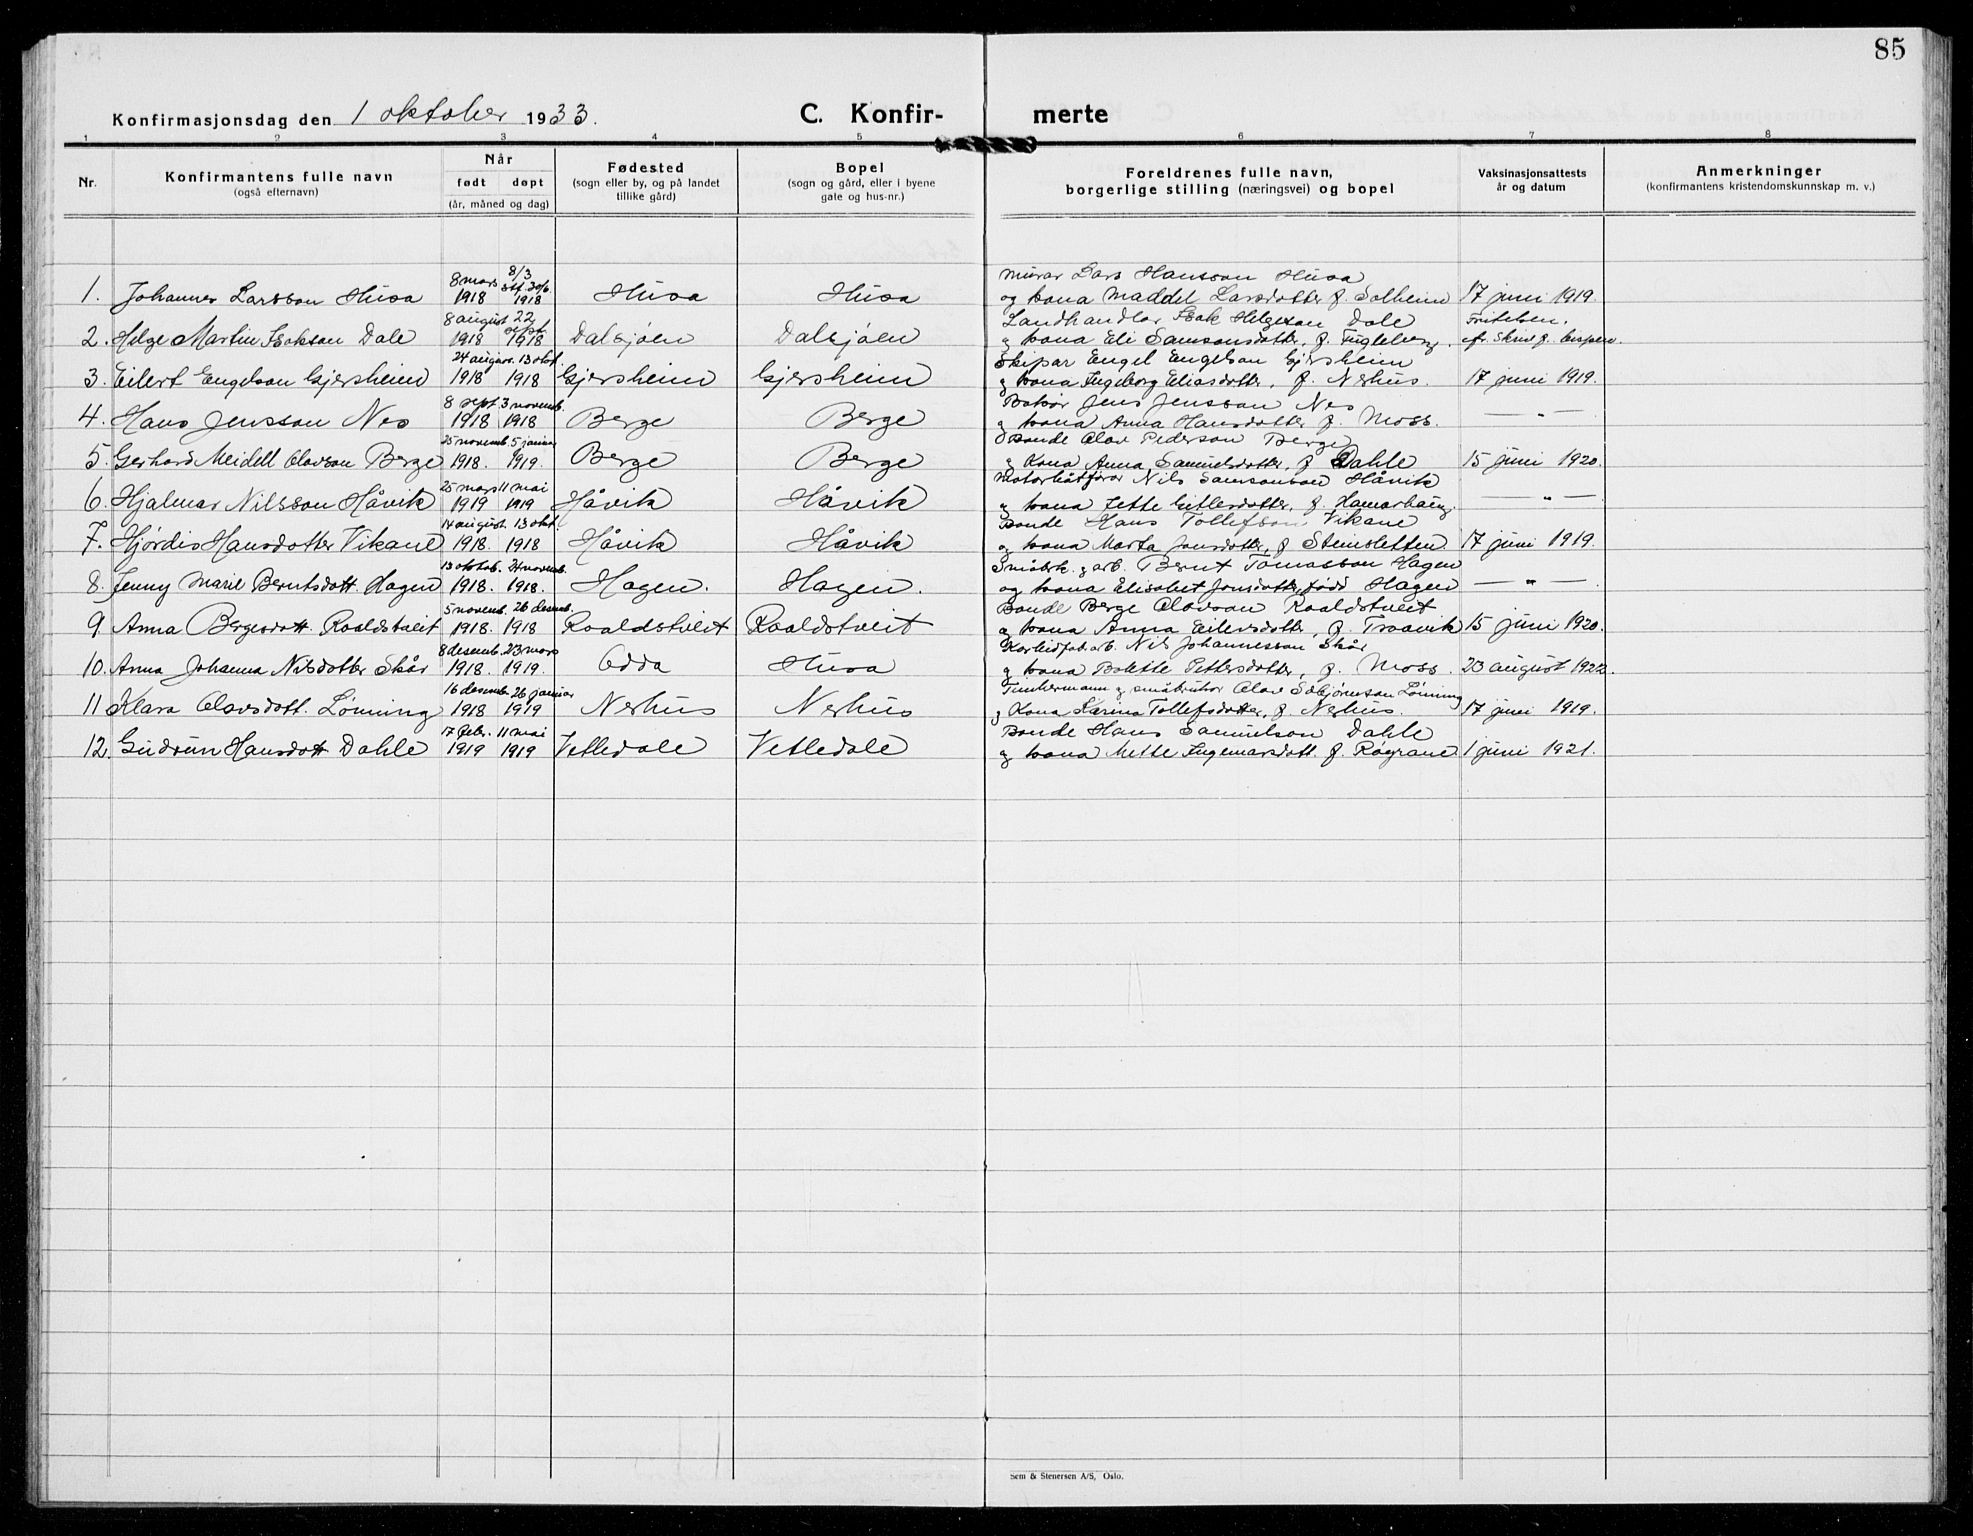 85
Konfirmasjonsdag den 1 oktober 1933. C. Konfir- merte
1 2 3 4 5 6 7 8
Nr. Konfirmantens fulle navn (også efternavn) Når født døpt (år, måned og dag) Fødested (sogn eller by, og på landet tillike gård) Bopel (sogn og gård, eller i byene gate og hus-nr.) Foreldrenes fulle navn, borgerlige stilling (næringsvei) og bopel Vaksinasjonsattests år og datum Anmerkninger (konfirmantens kristendomskunnskap m. v.)
8/3 Murar Lars Hansson Husa
8 mars stf. 30/6
1. Johannes Larsson Husa 1918 1918 Husa Husa og kona Maddel Larsdotter f. Solheim 17 juni 1919.
8 august 22 sept Landhandlar Isak Helgeson Dale Fritelsen.
2. Helge Martin Isakson Dale 1918 1918 Dalsjøen Dalsjøen og kona Eli Samsonsdotter, f. Fugleberg.
24 august. 13 okt. Skipar Engel Engelson Gjersheim
3. Eilert Engelson Gjersheim 1918 1918 Gjersheim Gjersheim og kona Ingeborg Eliasdotter, f. Nerhus. 17 juni 1919.
8 sept 3 novemb. Jens Jensson Nes
4. Hans Jensson Nes 1918 1918 Berge Berge og kona Anna Hansdotter f. Moss. — " —
25 novemb. 5 januar Bonde Olav Pederson Berge
5. Gerhard Meidell Olavson Berge 1918. 1919. Berge Berge og Kona Anna Samuelsdotter, f Dahle 15 juni 1920.
25 mars 11 mai Motorbåtførar Nils Samsonson Håvik
6. Hjalmar Nilsson Håvik 1919 1919 Håvik Håvik og kona Jette Gitlesdotter, f. Hamarhaug. — " —
14 august. 13 okt. Bonde Hans Tollefson Vikane
7. Hjørdis Hansdotter Vikane 1918. 1918 Håvik Håvik og kona Marta Jonsdotter, f Steinsletten 17 juni 1919.
13 oktob. 24 novemb. Småbrk. g arb. Bernt Tomasson Hagen
8. Jenny Marie Berntsdott. Hagen 1918. 1918. Hagen. Hagen. og kona Elisabet Jonsdotter, fødd Hagen — " —
5 novemb. 26 desemb. Bonde Berge Olavson Raaldstveit
9. Anna Bergesdott. Raaldstveit 1918. 1918 Raaldstveit Raaldstveit og kona Anna Eilevsdotter, f. Traavik 15 juni 1920.
8 desemb. 23 mars Karbidfab.arb. Nils Johannesson Skår
10. Anna Johanna Nilsdotter Skår 1918. 1919. Odda Husa og kona Bolette Pettersdotter, f. Moss. 23 august 1922.
16 desemb. 26 januar Timbermann g småbrukar Olav Sebjørnson Lønning
11 Klara Olavsdott. Lønning 1918 1919 Nerhus Nerhus g Kona Karina Tollefsdotter, f. Nerhus. 17 juni 1919.
17 febr. 11 mai Bonde Hans Samuelson Dahle
12. Gudrun Hansdott Dahle 1919 1919 Vetledale Vetledale og kona Mette Ingemarsdott. f. Røgrane 1 juni 1921.
Sem & Stenersen A/S, Oslo.